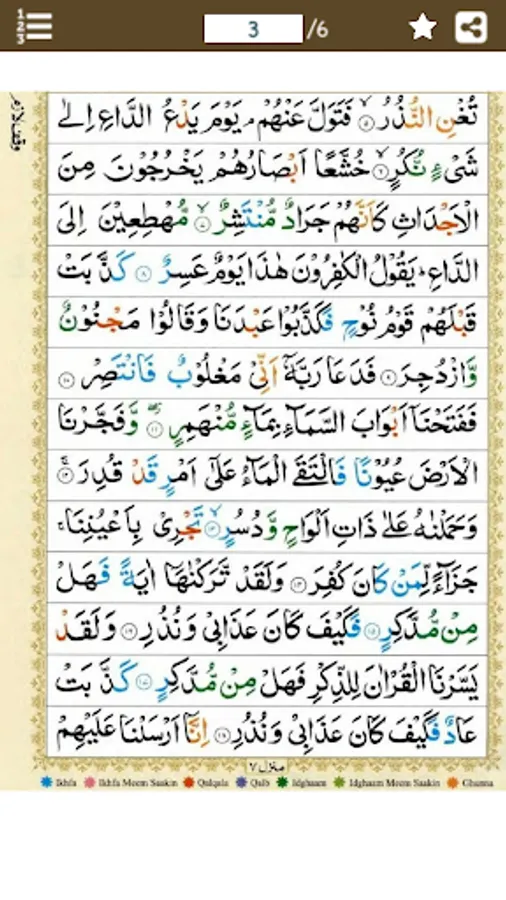 3/6
وقف لازم
تُغْنِ النُّذُرُ ۝٥ فَتَوَلَّ عَنْهُمْ ۘ يَوْمَ يَدْعُ الدَّاعِ اِلٰى
شَىْءٍ نُّكُرٍ ۝٦ خُشَّعًا اَبْصَارُهُمْ يَخْرُجُوْنَ مِنَ
الْاَجْدَاثِ كَاَنَّهُمْ جَرَادٌ مُّنْتَشِرٌ ۝٧ مُّهْطِعِيْنَ اِلَى
الدَّاعِ ؕ يَقُوْلُ الْكٰفِرُوْنَ هٰذَا يَوْمٌ عَسِرٌ ۝٨ كَذَّبَتْ
قَبْلَهُمْ قَوْمُ نُوْحٍ فَكَذَّبُوْا عَبْدَنَا وَقَالُوْا مَجْنُوْنٌ
وَّازْدُجِرَ ۝٩ فَدَعَا رَبَّهٗۤ اَنِّىْ مَغْلُوْبٌ فَانْتَصِرْ ۝١٠
فَفَتَحْنَاۤ اَبْوَابَ السَّمَآءِ بِمَآءٍ مُّنْهَمِرٍ ۝١١ وَّفَجَّرْنَا
الْاَرْضَ عُيُوْنًا فَالْتَقَى الْمَآءُ عَلٰٓى اَمْرٍ قَدْ قُدِرَ ۝١٢
وَحَمَلْنٰهُ عَلٰى ذَاتِ اَلْوَاحٍ وَّدُسُرٍ ۝١٣ تَجْرِىْ بِاَعْيُنِنَا ۚ
جَزَآءً لِّمَنْ كَانَ كُفِرَ ۝١٤ وَلَقَدْ تَّرَكْنٰهَاۤ اٰيَةً فَهَلْ
مِنْ مُّدَّكِرٍ ۝١٥ فَكَيْفَ كَانَ عَذَابِىْ وَنُذُرِ ۝١٦ وَلَقَدْ
يَسَّرْنَا الْقُرْاٰنَ لِلذِّكْرِ فَهَلْ مِنْ مُّدَّكِرٍ ۝١٧ كَذَّبَتْ
عَادٌ فَكَيْفَ كَانَ عَذَابِىْ وَنُذُرِ ۝١٨ اِنَّاۤ اَرْسَلْنَا عَلَيْهِمْ
منزل ٧
Ikhfa Ikhfa Meem Saakin Qalqala Qalb Idghaam Idghaam Meem Saakin Ghunna